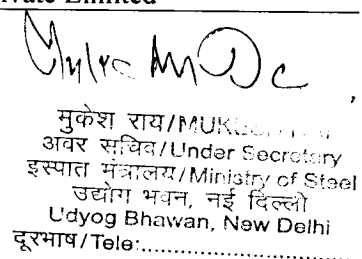 Private Limited
मुकेश राय/MUK
अवर सचिव/Under Secretary
इस्पात मंत्रालय/Ministry of Steel
उद्योग भवन, नई दिल्ली
Udyog Bhawan, New Delhi
दूरभाष/Tele:..............................